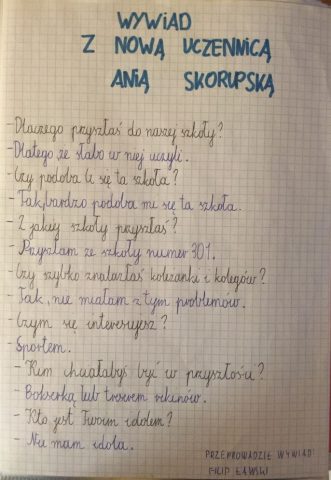 WYWIAD
Z NOWĄ UCZENNICĄ
ANIĄ SKORUPSKĄ
-Dlaczego przyszłaś do naszej szkoły?
-Dlatego że słabo w niej uczyli.
-Czy podoba Ci się ta szkoła?
-Tak, bardzo podoba mi się ta szkoła.
-Z jakiej szkoły przyszłaś?
-Przyszłam ze szkoły numer 301.
-Czy szybko znalazłaś koleżanki i kolegów?
-Tak, nie miałam z tym problemów.
-Czym się interesujesz?
-Sportem.
-Kim chciałabyś być w przyszłości?
-Bokserką lub trenerem rekinów.
-Kto jest Twoim idolem?
-Nie mam idola.
PRZEPROWADZIŁ WYWIAD
FILIP ŁAWSKI